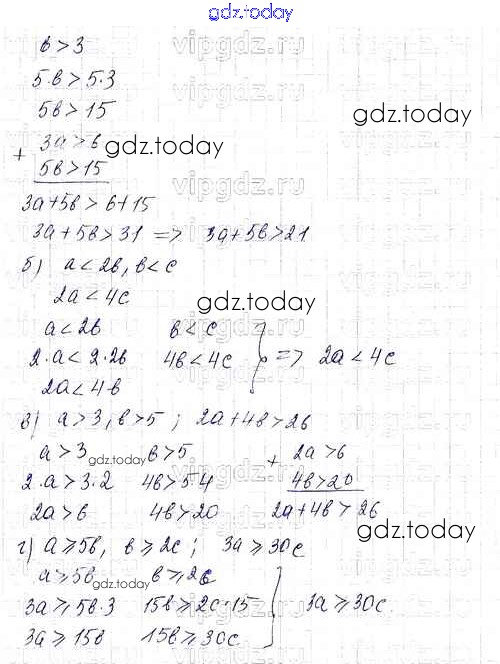 gdz.today
в > 3
5·в > 5·3
5в > 15
gdz.today
+ 3а > 6
gdz.today
5в > 15
3а + 5в > 6 + 15
3а + 5в > 31 => 3а + 5в > 21
б) а < 2в, в < с
2а < 4с
gdz.today
а < 2в в < с
2·а < 2·2в 4в < 4с } => 2а < 4с
2а < 4в
в) а > 3, в > 5 ; 2а + 4в > 26
а > 3 в > 5 + 2а > 6
gdz.today
2·а > 3·2 4в > 5·4 4в > 20
2а > 6 4в > 20 2а + 4в > 26
gdz.today
г) а ⩾ 5в, в ⩾ 2с ; 3а ⩾ 30с
а ⩾ 5в в ⩾ 2с
gdz.today
3а ⩾ 5в·3 15в ⩾ 2с·15 } 3а ⩾ 30с
3а ⩾ 15в 15в ⩾ 30с